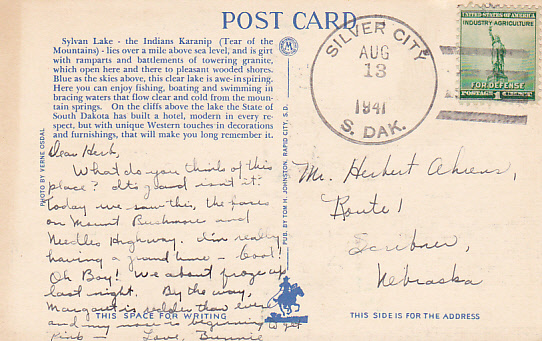 POST CARD
Sylvan Lake - the Indians Karanip (Tear of the
Mountains) - lies over a mile above sea level, and is girt
with ramparts and battlements of towering granite,
which open here and there to pleasant wooded shores.
Blue as the skies above, this clear lake is awe-inspiring.
Here you can enjoy fishing, boating and swimming in
bracing waters that flow clear and cold from the moun-
tain springs. On the cliffs above the lake the State of
South Dakota has built a hotel, modern in every re-
spect, but with unique Western touches in decorations
and furnishings, that will make you long remember it.
PHOTO BY VERNE OSDAL
Dear Herb,
What do you think of this
place? It's grand isn't it?
Today we saw this, the faces
on Mount Rushmore and
Needles Highway. I'm really
having a grand time - cool!
Oh Boy! We about froze up
last night. By the way,
Margaret is redder than ever
and my nose is beginning to get
Pink - Love, Bunnie
THIS SPACE FOR WRITING
PUB. BY TOM H. JOHNSTON, RAPID CITY, S.D.
SILVER CITY
AUG
13
1941
S. DAK.
UNITED STATES OF AMERICA
INDUSTRY-AGRICULTURE
FOR DEFENSE
POSTAGE 1 CENT
Mr. Herbert Ahrens,
Route 1
Scribner,
Nebraska
THIS SIDE IS FOR THE ADDRESS